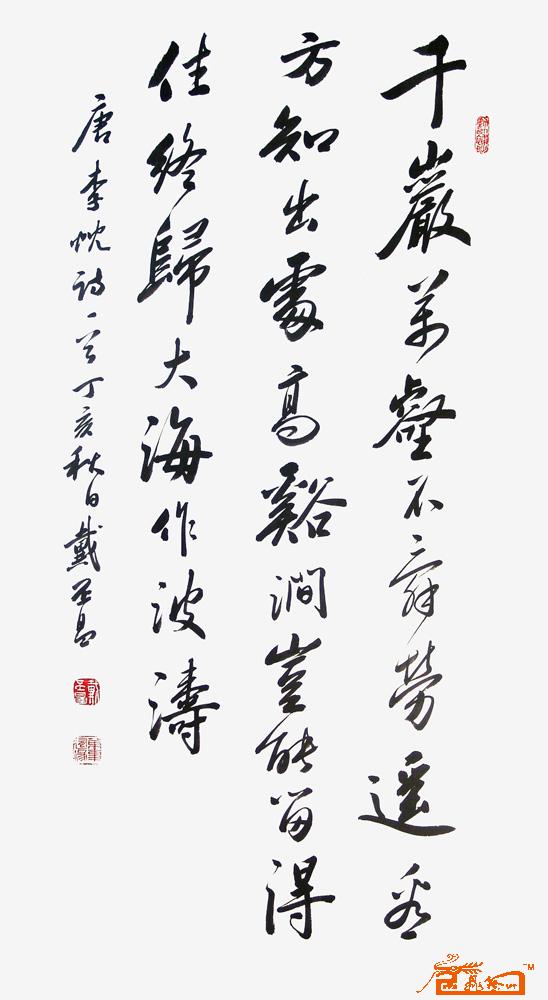 千巖萬壑不辭勞遥看
方知出處高谿澗豈能留得
住終歸大海作波濤
唐李忱詩一首丁亥秋日戴